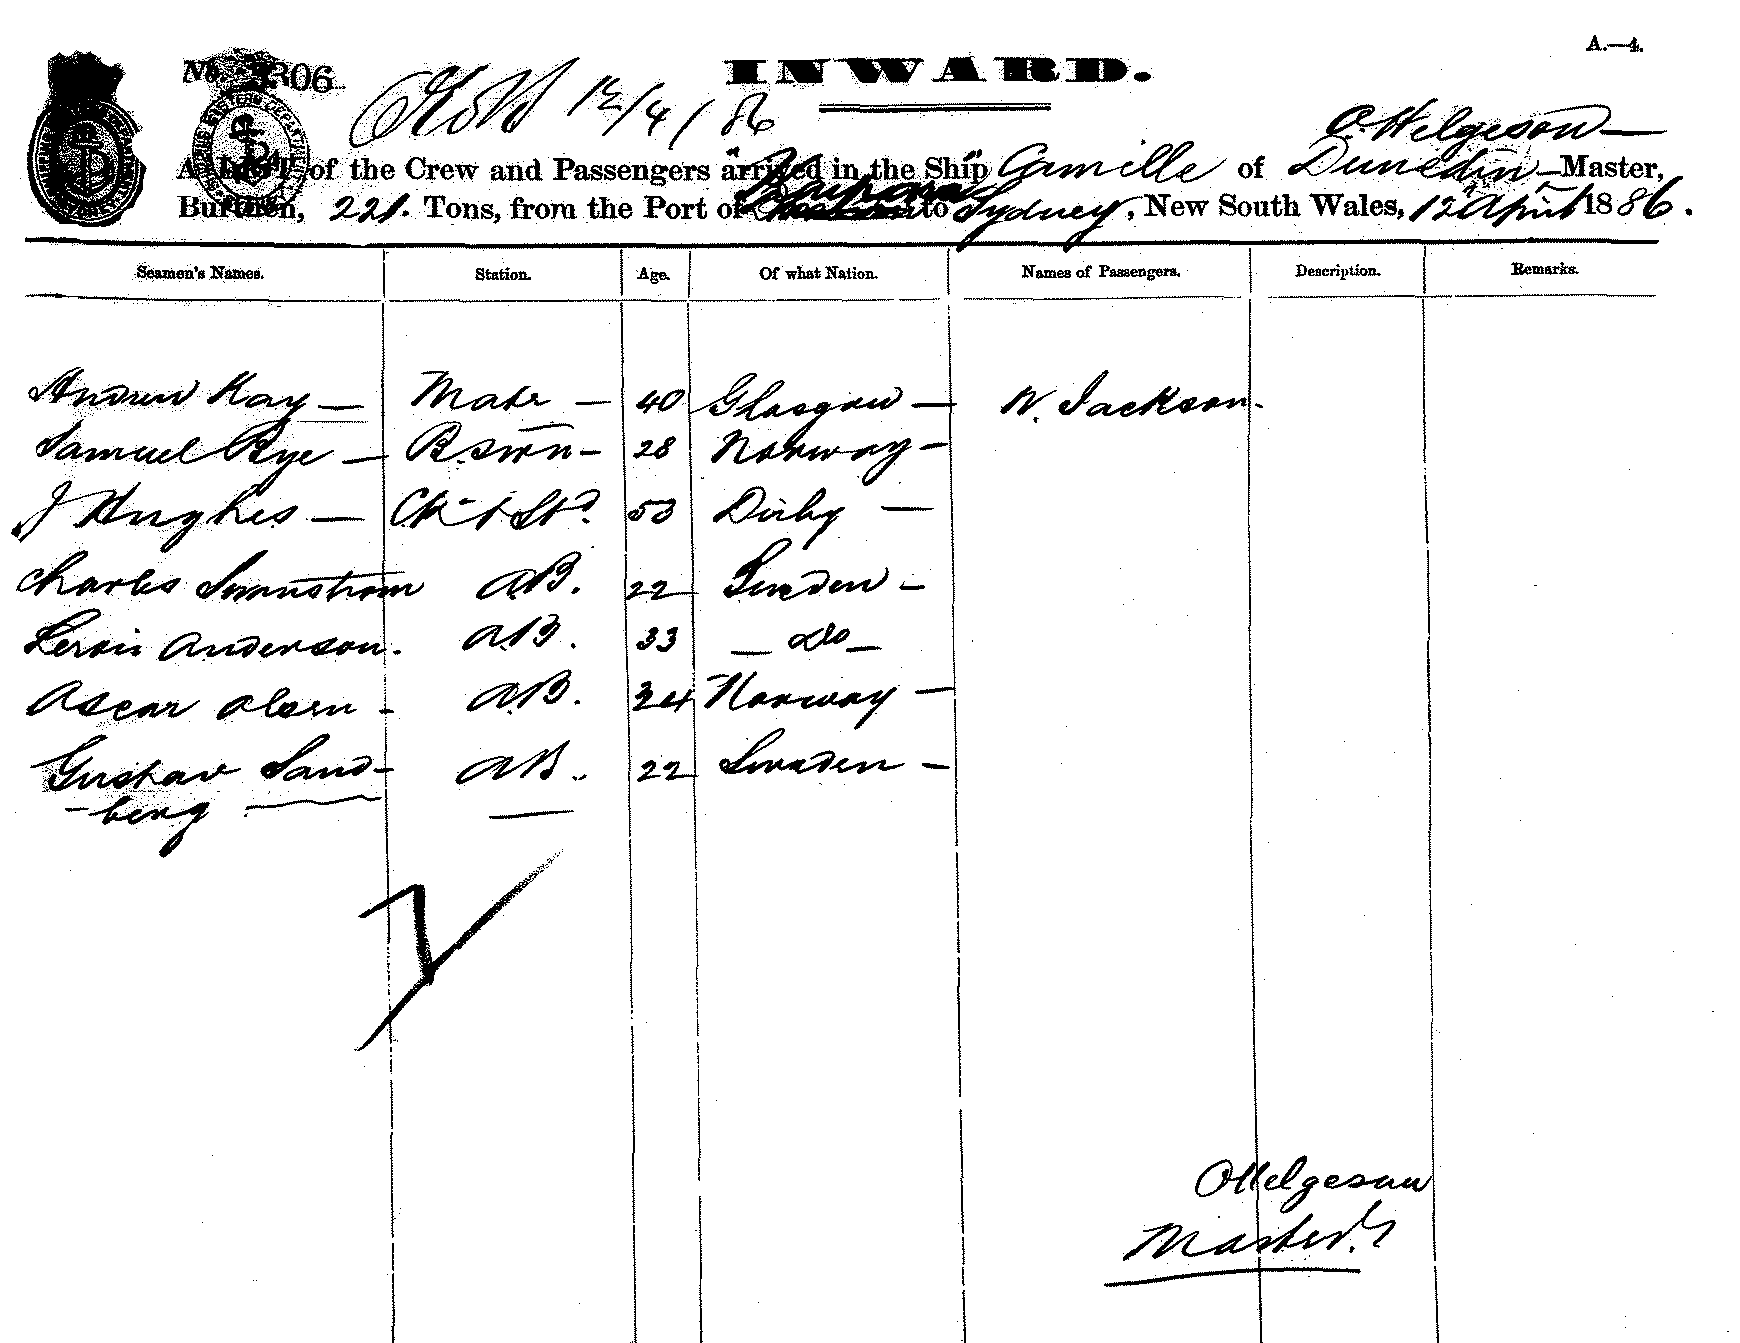 A.—4.
No. 306
INWARD.
12/4/86
O. Helgeson—
A LIST of the Crew and Passengers arrived in the Ship "Camille of Dunedin —Master,
Burthen, 221. Tons, from the Port of Kaipara to Sydney, New South Wales, 12 April 1886.
Seamen's Names. Station. Age. Of what Nation. Names of Passengers. Description. Remarks.
Andrew Kay — Mate — 40 Glasgow — W. Jackson.
Samuel Bye — B.swn — 28 Norway —
J Hughes — Ck & Std. 53 Dirby —
Charles AB. 22 Sweden —
Anderson. AB. 33 — Do —
Ascar Olsen - AB. 24 Norway —
Gustav Sand- AB. 22 Sweden —
-berg
O Helgeson
Master.